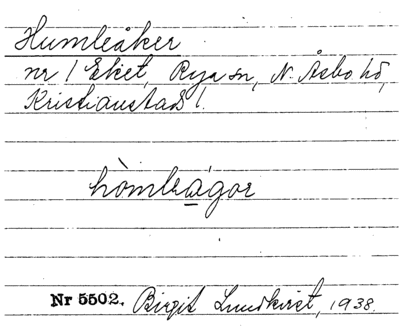 Humleåker
nr 1 Eket, Rya sn, N. Åsbo hd,
Kristianstads l.
hòmleágor
Nr 5502. Birgit Lundkvist, 1938.